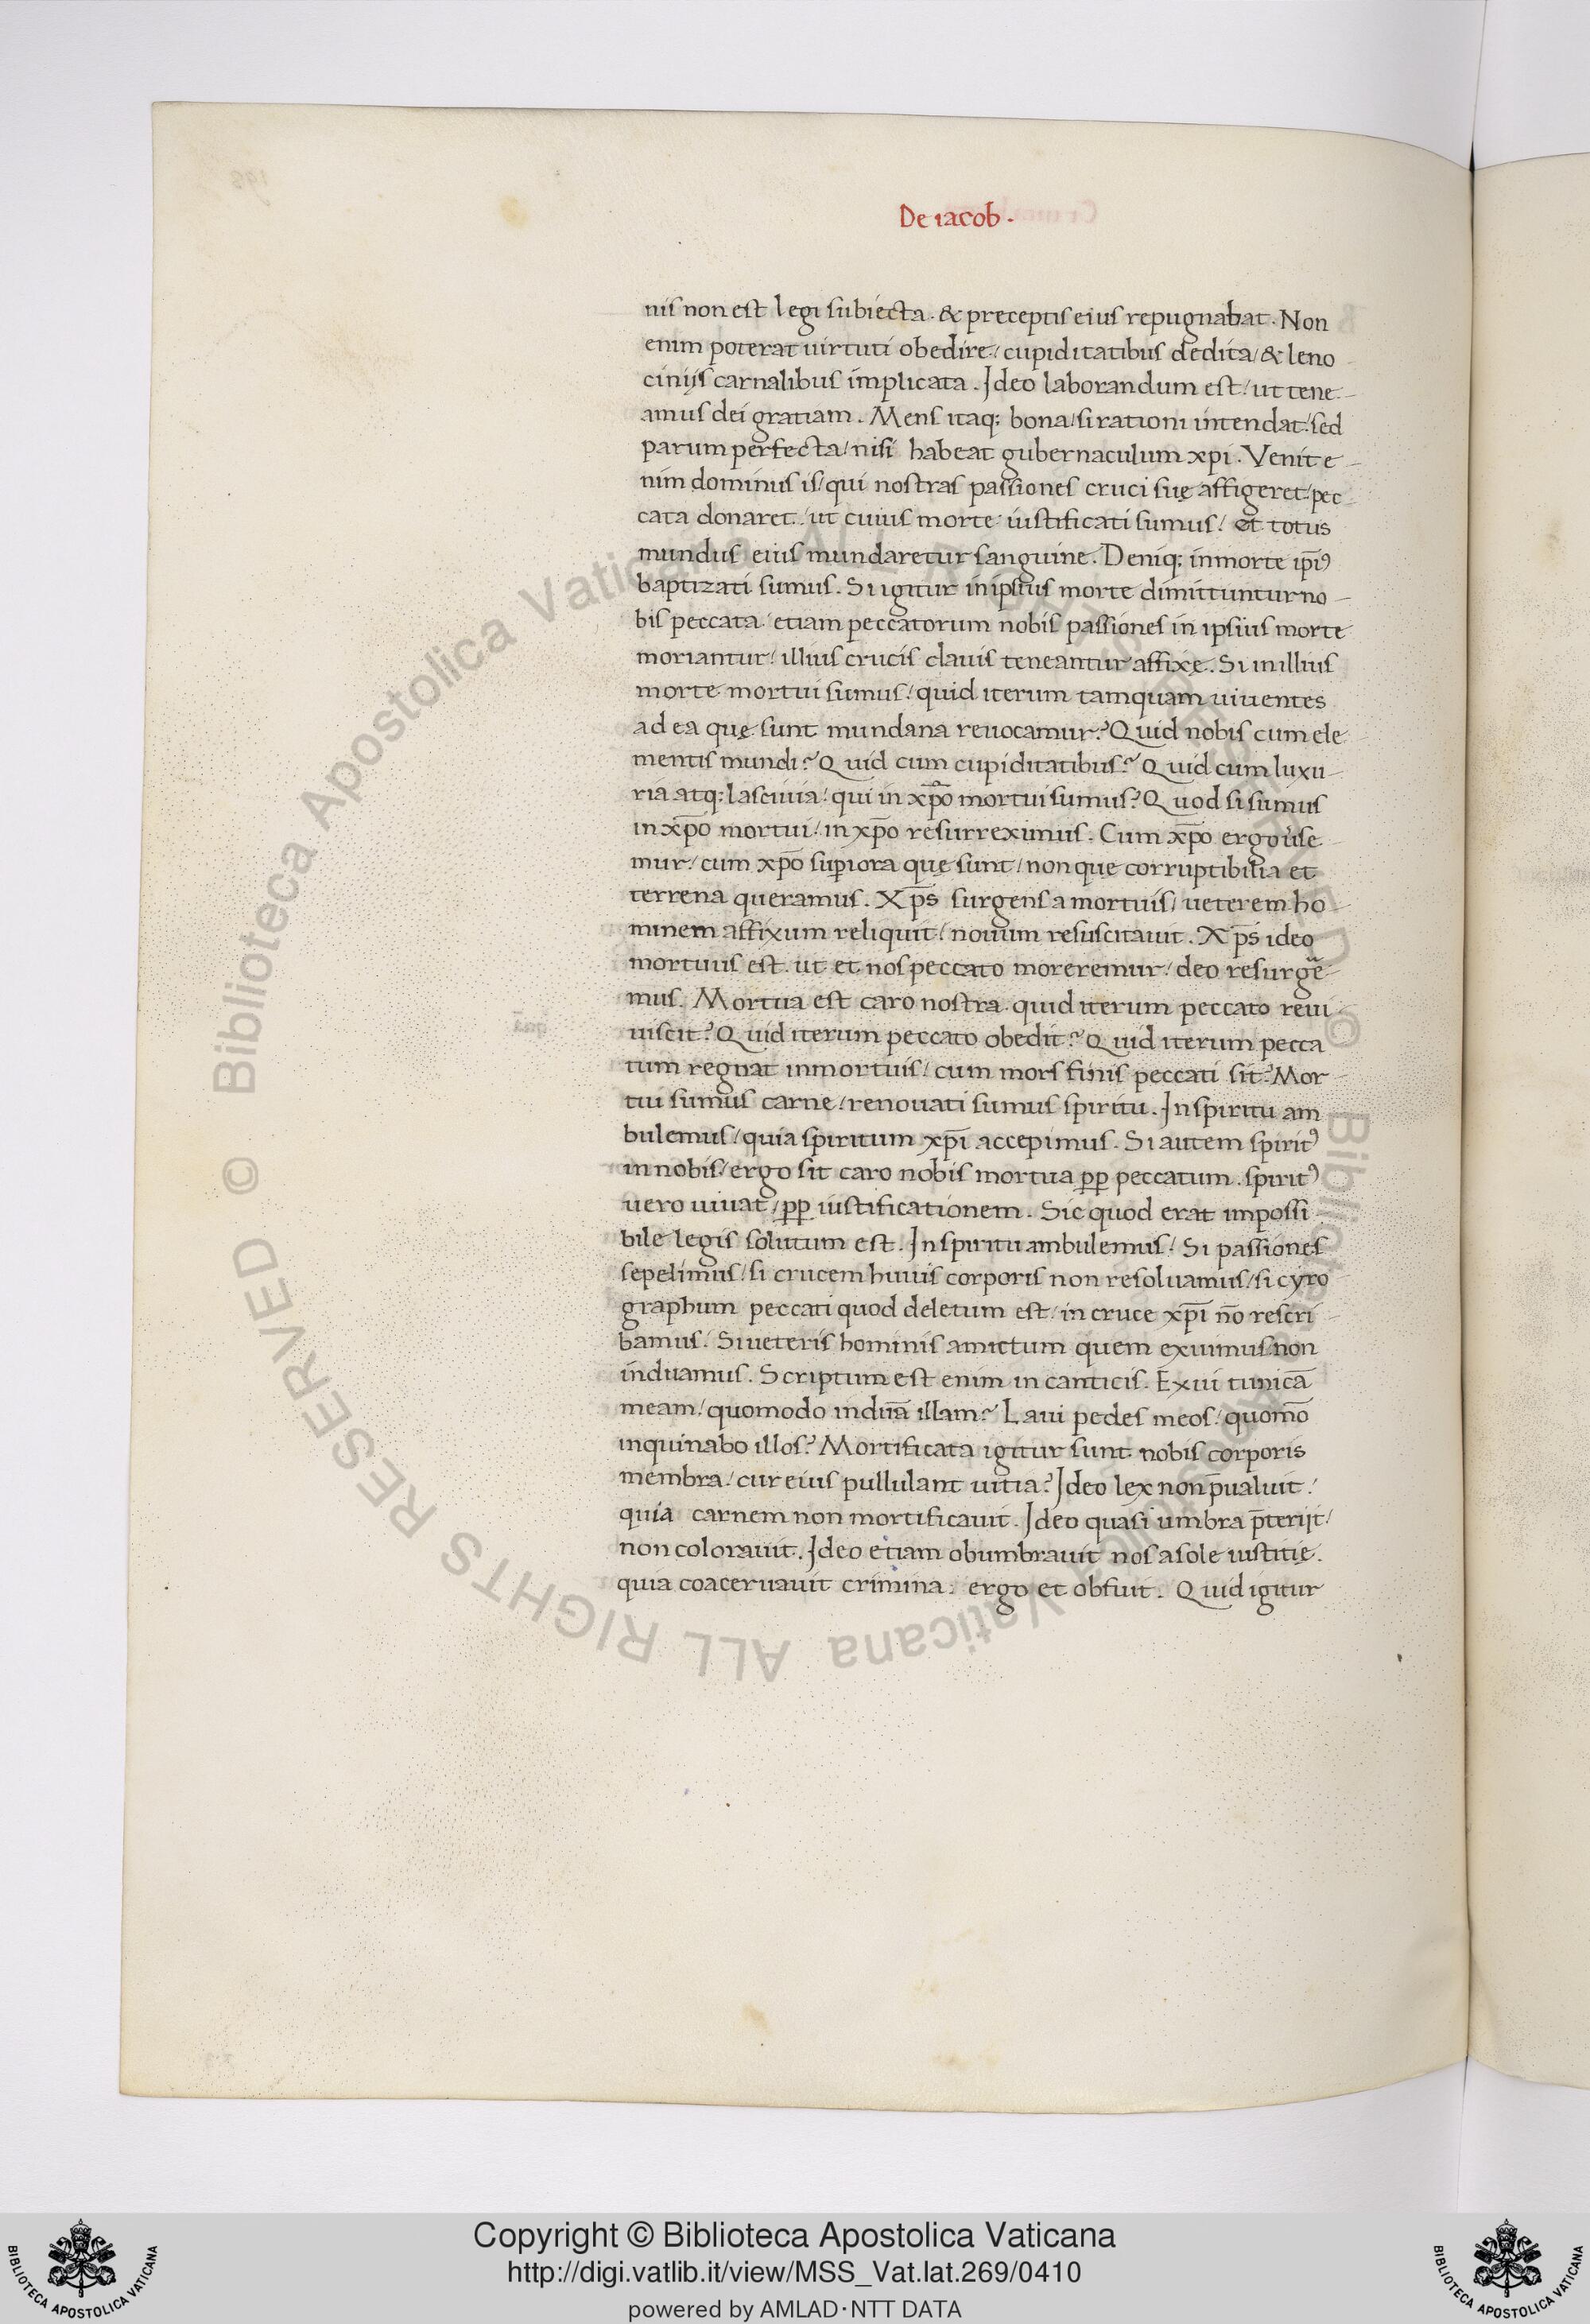 De iacob.
nis non est legi subiecta. & preceptis eius repugnabat. Non
enim poterat uirtuti obedire/ cupiditatibus dedita/ & leno
cinijs carnalibus implicata. Ideo laborandum est/ ut tene-
amus dei gratiam. Mens itaq; bona/ si rationi intendat/ sed
parum perfecta/ nisi habeat gubernaculum xpi. Venit e-
nim dominus is/ qui nostras passiones cruci suę affigeret/ pec
cata donaret/ ut cuius morte iustificati sumus/ et totus
mundus eius mundaretur sanguine. Deniq; in morte ip̄iꝰ
baptizati sumus. Si igitur in ipsius morte dimittuntur no-
bis peccata/ etiam peccatorum nobis passiones in ipsius morte
moriantur/ illius crucis clauis teneantur affixę. Si in illius
morte mortui sumus/ quid iterum tamquam uiuentes
ad ea quę sunt mundana reuocamur? Quid nobis cum ele
mentis mundi? Quid cum cupiditatibus? Quid cum luxu-
ria atq; lasciuia/ qui in xp̄o mortui sumus? Quod si sumus
in xp̄o mortui/ in xp̄o resurreximus. Cum xp̄o ergo u̓se-
mur/ cum xp̄o sup̄iora quę sunt/ non que corruptibilia et
terrena queramus. Xp̄s surgens a mortuis/ ueterem ho-
minem affixum reliquit/ nouum resuscitauit. Xp̄s ideo
mortuus est. ut et nos peccato moreremur/ deo resurgē-
mus. Mortua est caro nostra. quid iterum peccato reui
uiscit? Quid iterum peccato obedit? Quid iterum pecca
tum regnat in mortuis/ cum mors finis peccati sit? Mor-
tui sumus carne/ renouati sumus spiritu. In spiritu am
bulemus/ quia spiritum xp̄i accepimus. Si autem spiritꝰ
in nobis/ ergo sit caro nobis mortua pp̄ peccatum. spiritꝰ
uero uiuat/ pp̄ iustificationem. Sic quod erat impossi-
bile legis solutum est. In spiritu ambulemus/ Si passiones
sepelimus/ si crucem huius corporis non resoluamus/ si cyro
graphum peccati quod deletum est/ in cruce xp̄i nō rescri
bamus/ Si ueteris hominis amictum quem exuimus non
induamus. Scriptum est enim in canticis. Exui tunicā
meam/ quomodo induā illam? Laui pedes meos/ quomō
inquinabo illos? Mortificata igitur sunt nobis corporis
membra/ cur eius pullulant uitia? Ideo lex non p̄ualuit/
quia carnem non mortificauit. Ideo quasi umbra p̄terijt/
non colorauit. Ideo etiam obumbrauit nos a sole iustitię.
quia coaceruauit crimina. ergo et obfuit. Quid igitur
© Biblioteca Apostolica Vaticana ALL RIGHTS RESERVED © Biblioteca Apostolica Vaticana ALL RIGHTS RESERVED
Copyright © Biblioteca Apostolica Vaticana
http://digi.vatlib.it/view/MSS_Vat.lat.269/0410
powered by AMLAD·NTT DATA
BIBLIOTECA APOSTOLICA VATICANA
BIBLIOTECA APOSTOLICA VATICANA